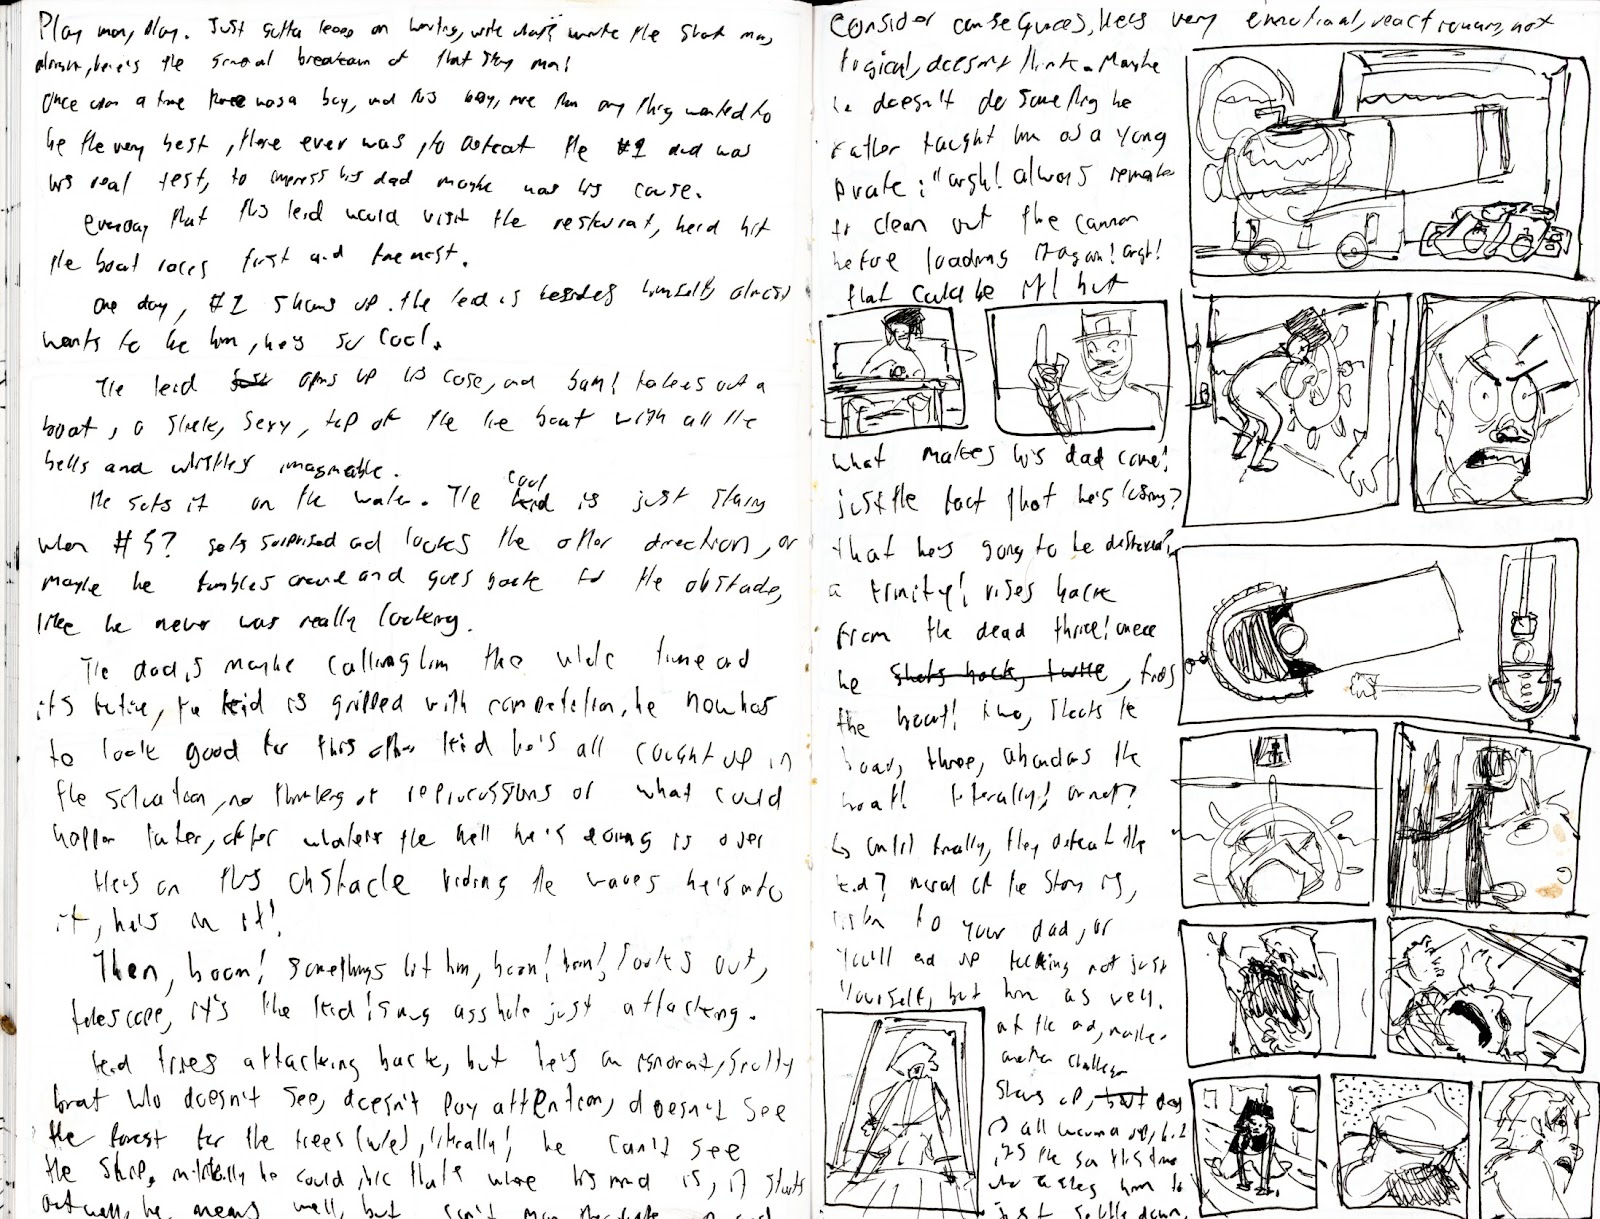 Play man, play. Just gotta keep on working, write write the short man,
alright, here's the general breakdown of that story man!
Once upon a time there was a boy, and this boy, more than anything wanted to
be the very best, there ever was, to defeat the #1 dad was
his real test, to impress his dad maybe was his cause.
everyday that this kid would visit the restaurat, he'd hit
the boat races first and formost.
one day, #1 shows up. the kid is besides himself, almost
wants to be him, he's so cool.
The kid opens up his case, and bam! takes out a
boat, a sleek, sexy, top of the line boat with all the
bells and whistles imaginable.
He sets it on the water. The cool kid is just staring
when #5? gets surprised and looks the other direction, or
maybe he tumbles around and goes back to the obstacle,
like he never was really looking.
The dad is maybe calling him the whole time and
it's futile, the kid is gripped with competition, he now has
to look good for this other kid he's all caught up in
the situation, no thinking of reprocussions or what could
happen later, after whatever the hell he's doing is over
He's on this obstacle riding the waves he's into
it, he's in it!
Then, boom! somethings hit him, boom! bom! looks out,
telescope, it's the kid! smug asshole just attacking.
kid tries attacking back, but he's an ignorant, snotty
brat who doesn't see, doesn't pay attention, doesn't see
the forest for the trees (w/e), literally! he can't see
the ship, initially he could, but that's where his mind is, it starts
out well, he means well, but can't
consider consequences, he's very emotional, reactionary, not
logical, doesn't think. Maybe
he doesn't do something his
father taught him as a young
pirate: "argh! always remember
to clean out the cannon
before loading it again! argh!
that could be it! but
what makes his dad come?
just the fact that he's losing?
that he's going to be destroyed?
a trinity! rises back
from the dead thrice! once
he shots back, twice, fries
the boat! two, shoots the
boat, three, abandons the
boat! literally! or not?
↳ until finally, they defeat the
kid? moral of the story is,
listen to your dad, or
you'll end up fucking not just
yourself, but him as well.
at the end, maybe
another challenger
shows up, but dad
is all up, but
it's the son this time
who tells him to
just settle down.